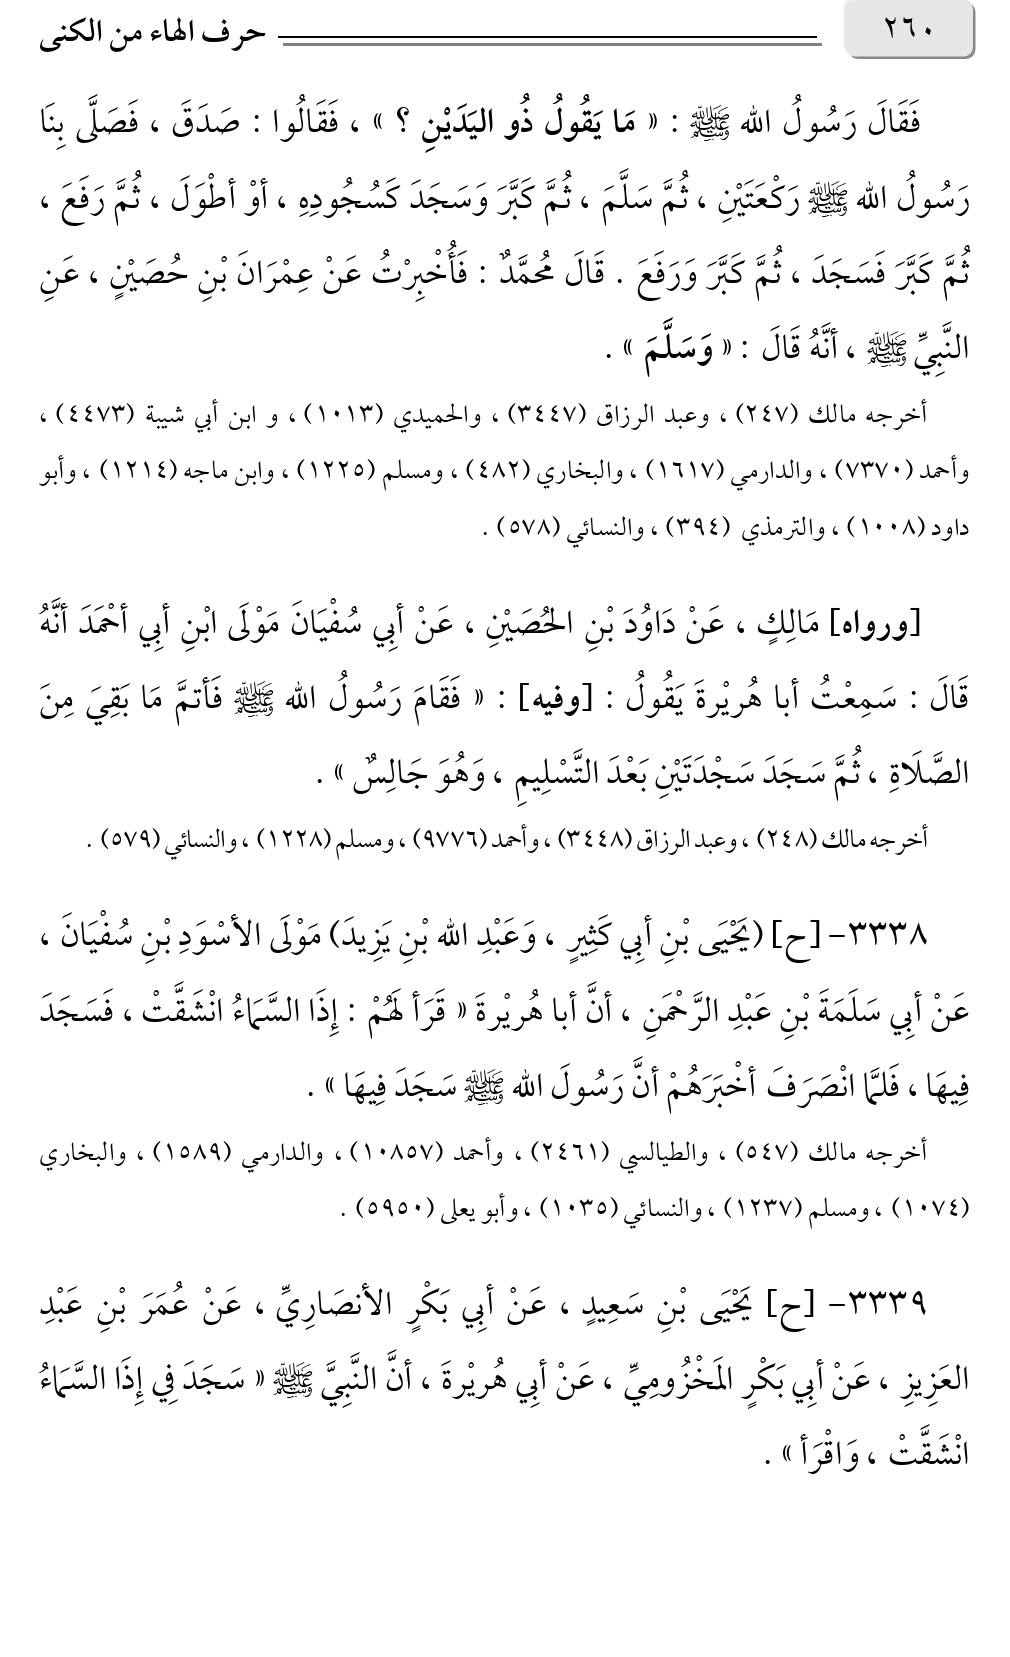 ٢٦٠
حرف الهاء من الكنى
فَقَالَ رَسُولُ الله ﷺ : « مَا يَقُولُ ذُو اليَدَيْنِ ؟ » ، فَقَالُوا : صَدَقَ ، فَصَلَّى بِنَا
رَسُولُ الله ﷺ رَكْعَتَيْنِ ، ثُمَّ سَلَّمَ ، ثُمَّ كَبَّرَ وَسَجَدَ كَسُجُودِهِ ، أوْ أطْوَلَ ، ثُمَّ رَفَعَ ،
ثُمَّ كَبَّرَ فَسَجَدَ ، ثُمَّ كَبَّرَ وَرَفَعَ . قَالَ مُحمَّدٌ : فَأُخْبِرْتُ عَنْ عِمْرَانَ بْنِ حُصَيْنٍ ، عَنِ
النَّبِيِّ ﷺ ، أنَّهُ قَالَ : « وَسَلَّمَ » .
أخرجه مالك (٢٤٧) ، وعبد الرزاق (٣٤٤٧) ، والحميدي (١٠١٣) ، و ابن أبي شيبة (٤٤٧٣) ،
وأحمد (٧٣٧٠) ، والدارمي (١٦١٧) ، والبخاري (٤٨٢) ، ومسلم (١٢٢٥) ، وابن ماجه (١٢١٤) ، وأبو
داود (١٠٠٨) ، والترمذي (٣٩٤) ، والنسائي (٥٧٨) .
[ورواه] مَالِكٍ ، عَنْ دَاوُدَ بْنِ الحُصَيْنِ ، عَنْ أبِي سُفْيَانَ مَوْلَى ابْنِ أبِي أحْمَدَ أنَّهُ
قَالَ : سَمِعْتُ أبا هُريْرةَ يَقُولُ : [وفيه] : « فَقَامَ رَسُولُ الله ﷺ فَأتمَّ مَا بَقِيَ مِنَ
الصَّلَاةِ ، ثُمَّ سَجَدَ سَجْدَتَيْنِ بَعْدَ التَّسْلِيمِ ، وَهُوَ جَالِسٌ » .
أخرجه مالك (٢٤٨) ، وعبد الرزاق (٣٤٤٨) ، وأحمد (٩٧٧٦) ، ومسلم (١٢٢٨) ، والنسائي (٥٧٩) .
٣٣٣٨- [ح] (يَحْيَى بْنِ أبِي كَثِيرٍ ، وَعَبْدِ الله بْنِ يَزِيدَ) مَوْلَى الأسْوَدِ بْنِ سُفْيَانَ ،
عَنْ أبِي سَلَمَةَ بْنِ عَبْدِ الرَّحْمَنِ ، أنَّ أبا هُريْرةَ « قَرَأ لَهُمْ : إِذَا السَّمَاءُ انْشَقَّتْ ، فَسَجَدَ
فِيهَا ، فَلمَّا انْصَرَفَ أخْبَرَهُمْ أنَّ رَسُولَ الله ﷺ سَجَدَ فِيهَا » .
أخرجه مالك (٥٤٧) ، والطيالسي (٢٤٦١) ، وأحمد (١٠٨٥٧) ، والدارمي (١٥٨٩) ، والبخاري
(١٠٧٤) ، ومسلم (١٢٣٧) ، والنسائي (١٠٣٥) ، وأبو يعلى (٥٩٥٠) .
٣٣٣٩- [ح] يَحْيَى بْنِ سَعِيدٍ ، عَنْ أبِي بَكْرٍ الأنصَارِيِّ ، عَنْ عُمَرَ بْنِ عَبْدِ
العَزِيزِ ، عَنْ أبِي بَكْرٍ المَخْزُومِيِّ ، عَنْ أبِي هُريْرةَ ، أنَّ النَّبِيَّ ﷺ « سَجَدَ فِي إِذَا السَّمَاءُ
انْشَقَّتْ ، وَاقْرَأ » .